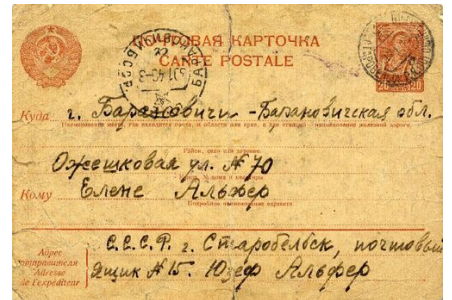 ПОЧТОВАЯ КАРТОЧКА
CARTE POSTALE
20 20
Куда г. Барановичи - Барановичская обл.
Район, село или деревня
Ожешковая ул. № 70
Кому Елене Альфер
Адрес отправителя
Adresse de l'expéditeur
С.С.С.Р. г. Старобельск, почтовый
ящик № 15. Юзеф Альфер